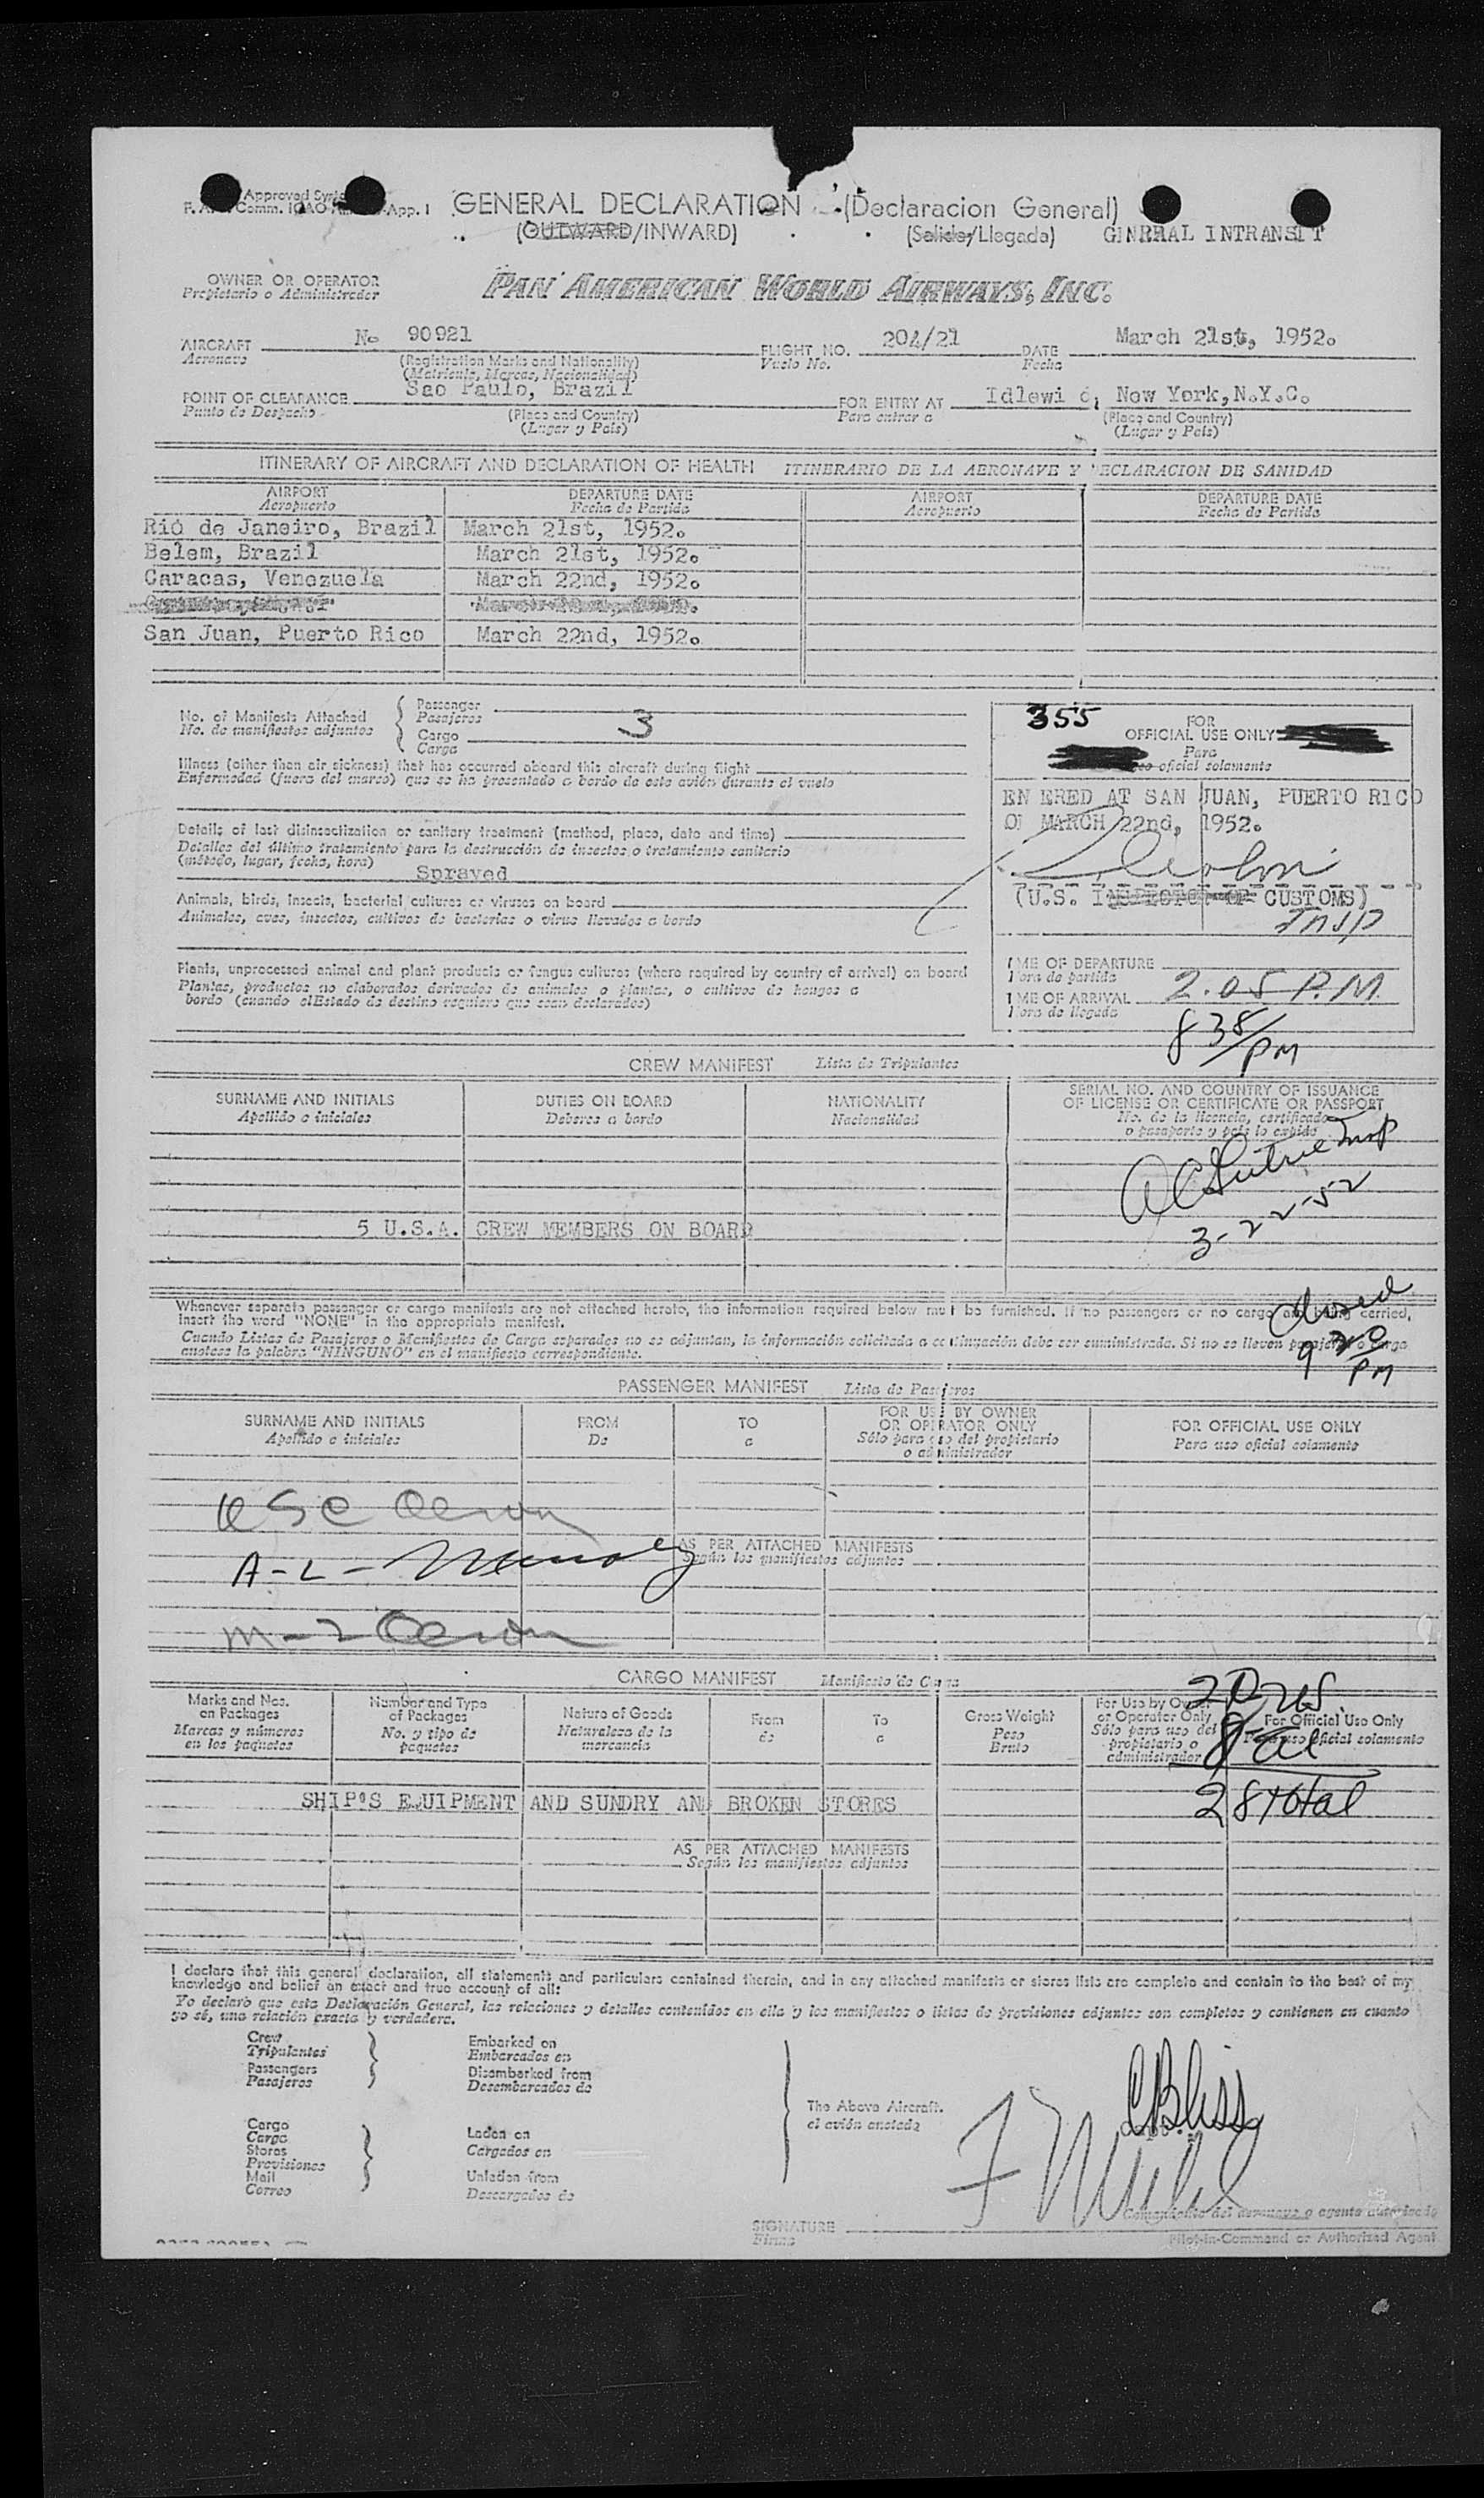 Approved
F. A. Comm. ICAO App. 1
GENERAL DECLARATION (Declaracion General)
(OUTWARD/INWARD) (Salida/Llegada) GENERAL INTRANSIT
OWNER OR OPERATOR
Propietario o Administrador
PAN AMERICAN WORLD AIRWAYS, INC.
AIRCRAFT No 90921 FLIGHT NO. 204/21 DATE March 21st, 1952.
Aeronave (Registration Marks and Nationality) Vuelo No. Fecha
(Matricula, Marcas, Nacionalidad)
POINT OF CLEARANCE Sao Paulo, Brazil FOR ENTRY AT Idlewi d, New York, N.Y.C.
Punto de Despacho (Place and Country) Para entrar a (Place and Country)
(Lugar y Pais) (Lugar y Pais)
ITINERARY OF AIRCRAFT AND DECLARATION OF HEALTH ITINERARIO DE LA AERONAVE Y DECLARACION DE SANIDAD
AIRPORT DEPARTURE DATE AIRPORT DEPARTURE DATE
Aeropuerto Fecha de Partida Aeropuerto Fecha de Partida
Rio de Janeiro, Brazil March 21st, 1952.
Belem, Brazil March 21st, 1952.
Caracas, Venezuela March 22nd, 1952.
San Juan, Puerto Rico March 22nd, 1952.
No. of Manifests Attached
No. de manifiestos adjuntos
Passenger
Pasajeros
Cargo 3
Carga
Illness (other than air sickness) that has occurred aboard this aircraft during flight
Enfermedad (fuera del mareo) que se ha presentado a bordo de este avión durante el vuelo
Details of last disinsectization or sanitary treatment (method, place, date and time)
Detalles del último tratamiento para la destrucción de insectos o tratamiento sanitario
(método, lugar, fecha, hora)
Sprayed
Animals, birds, insects, bacterial cultures or viruses on board
Animales, aves, insectos, cultivos de bacterias o virus llevados a bordo
Plants, unprocessed animal and plant products or fungus cultures (where required by country of arrival) on board
Plantas, productos no elaborados derivados de animales o plantas, o cultivos de hongos a
bordo (cuando el Estado de destino requiera que sean declarados)
355 FOR
OFFICIAL USE ONLY
Para
oficial solamente
EN ERED AT SAN JUAN, PUERTO RICO
ON MARCH 22nd, 1952.
(U.S. INSPECTOR OF CUSTOMS)
INSP
TIME OF DEPARTURE
Hora de partida
TIME OF ARRIVAL 2.05 P.M.
Hora de llegada
8 38/PM
CREW MANIFEST Lista de Tripulantes
SURNAME AND INITIALS DUTIES ON BOARD NATIONALITY SERIAL NO. AND COUNTRY OF ISSUANCE
Apellido o iniciales Deberes a bordo Nacionalidad OF LICENSE OR CERTIFICATE OR PASSPORT
No. de la licencia, certificado
o pasaporte y pais lo expide
Insp
3-22-52
5 U.S.A. CREW MEMBERS ON BOARD
Whenever separate passenger or cargo manifests are not attached hereto, the information required below must be furnished. If no passengers or no cargo are being carried,
insert the word "NONE" in the appropriate manifest.
Cuando Listas de Pasajeros o Manifiestos de Carga separados no se adjuntan, la información solicitada a continuación debe ser suministrada. Si no se lleven pasajeros o carga
anotese la palabra "NINGUNO" en el manifiesto correspondiente.
PM
PASSENGER MANIFEST Lista de Pasajeros
SURNAME AND INITIALS FROM TO FOR USE BY OWNER FOR OFFICIAL USE ONLY
Apellido o iniciales De a OR OPERATOR ONLY Para uso oficial solamente
Sólo para uso del propietario
o administrador
AS PER ATTACHED MANIFESTS
Según los manifiestos adjuntos
A-L-
CARGO MANIFEST Manifiesto de Carga
Marks and Nos. on Packages
Marcas y números en los paquetes
Number and Type of Packages
No. y tipo de paquetes
Nature of Goods
Naturaleza de la mercancia
From
de
To
a
Gross Weight
Peso Bruto
For Use by Owner or Operator Only
Sólo para uso del propietario o administrador
For Official Use Only
Para uso oficial solamente
28 total
SHIP'S EQUIPMENT AND SUNDRY AND BROKEN STORES
AS PER ATTACHED MANIFESTS
Según los manifiestos adjuntos
I declare that this general declaration, all statements and particulars contained therein, and in any attached manifests or stores lists are complete and contain to the best of my
knowledge and belief an exact and true account of all:
Yo declaro que esta Declaración General, las relaciones y detalles contenidos en ella y los manifiestos o listas de provisiones adjuntos son completos y contienen en cuanto
yo sé, una relación exacta y verdadera.
Crew
Tripulantes
Passengers
Pasajeros
Embarked on
Embarcados en
Disembarked from
Desembarcados de
Cargo
Carga
Stores
Provisiones
Mail
Correo
Laden on
Cargados en
Unladen from
Descargados de
The Above Aircraft.
el avión anotado
CBliss
SIGNATURE
Firma
Comandante del aeronave o agente autorizado
Pilot-in-Command or Authorized Agent